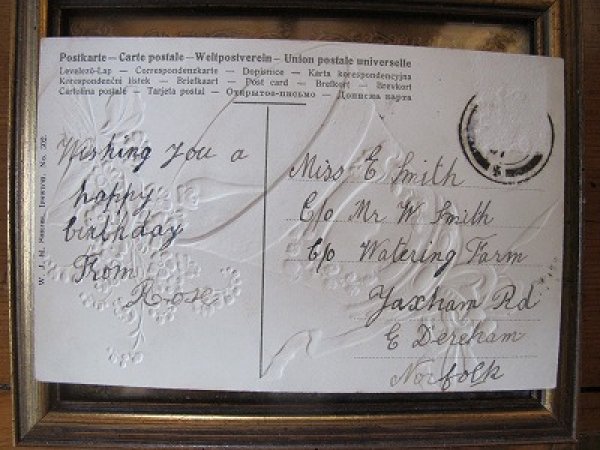 Postkarte — Carte postale — Weltpostverein — Union postale universelle
Levelező-Lap — Correspondenzkarte — Dopisnice — Karta korespondencyjna
Korespondenční lístek — Briefkaart — Post card — Brefkort — Brevkort
Cartolina postale — Tarjeta postal — Открытое письмо — Дописна карта
Wishing you a
happy
birthday
From
Rose
Miss E Smith
C/o Mr W Smith
C/o Watering Farm
Yaxham Rd
E Dereham
Norfolk
No. 502.